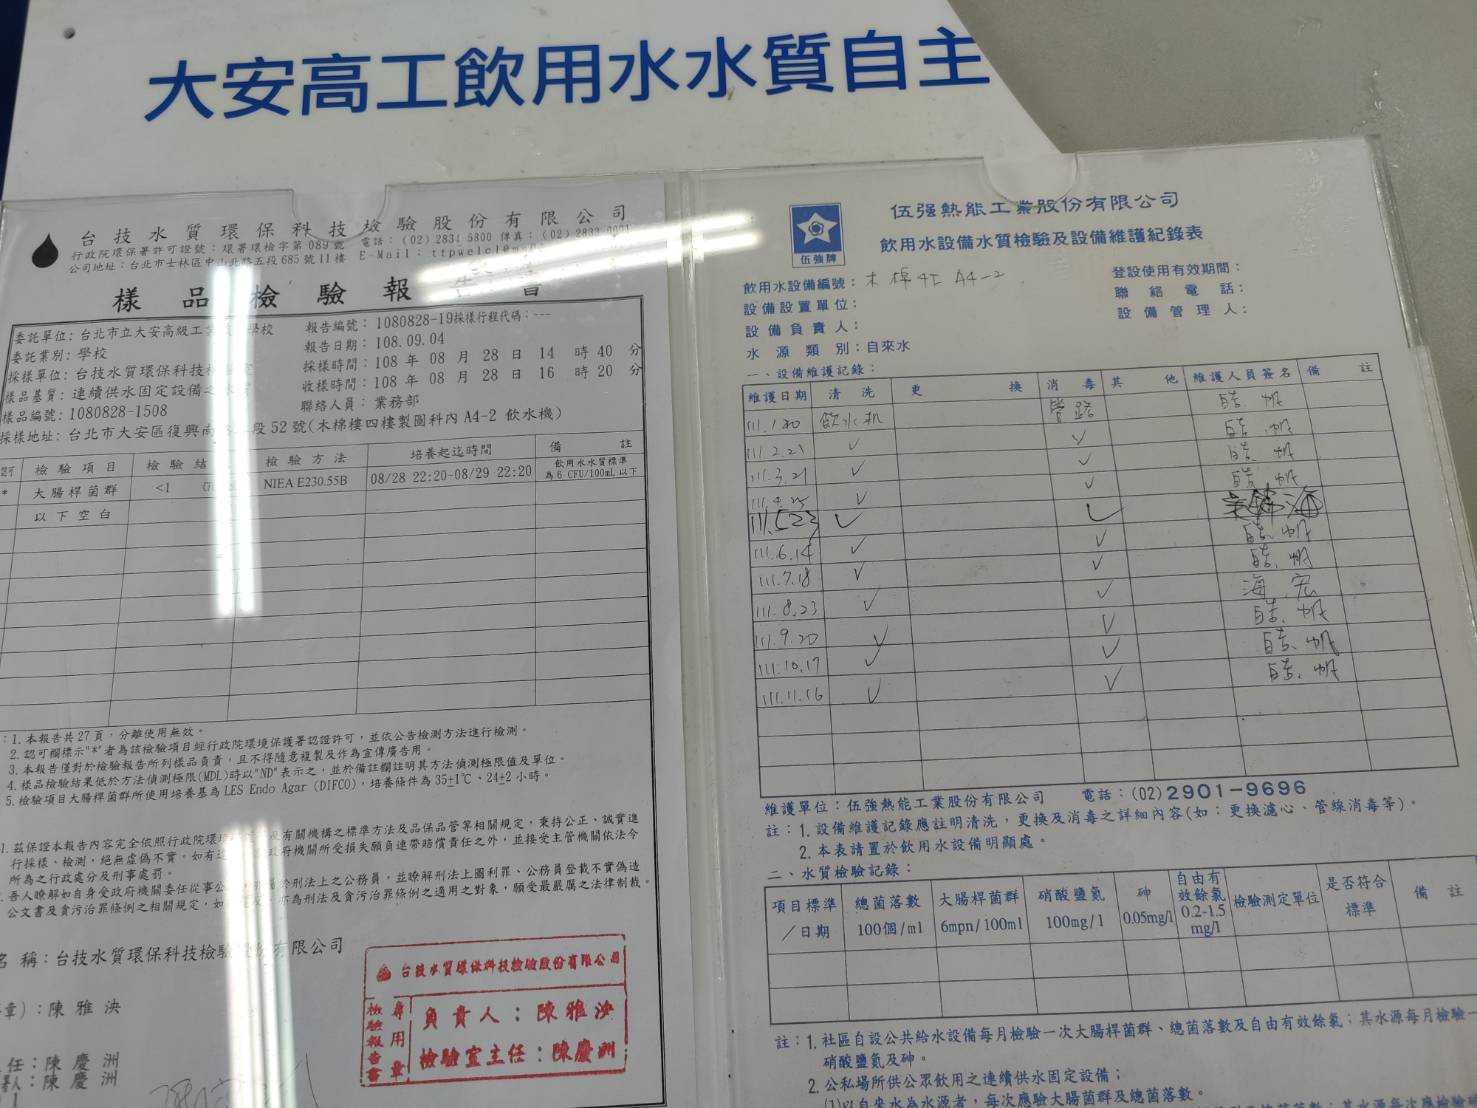 大安高工飲用水水質自主
台技水質環保科技檢驗股份有限公司
行政院環保署許可證號：環署環檢字第089號
公司地址：台北市士林區中山北路五段685號11樓
電話：(02) 2831-5800 傳真：(02)
E-Mail：
樣品檢驗報告書
委託單位：台北市立大安高級工 學校
委託業別：學校
採樣單位：台技水質環保科技
樣品基質：連續供水固定設備之水
樣品編號：1080828-1508
採樣地址：台北市大安區復興南路 段52號(木棉樓四樓製圖科內 A4-2 飲水機)
報告編號：1080828-19採樣行程代碼：---
報告日期：108.09.04
採樣時間：108 年 08 月 28 日 14 時 40 分
收樣時間：108 年 08 月 28 日 16 時 20 分
聯絡人員：業務部
檢驗項目 檢驗結 檢驗方法 培養起迄時間 備註
* 大腸桿菌群 <1 NIEA E230.55B 08/28 22:20-08/29 22:20 飲用水水質標準
為6 CFU/100mL以下
以下空白
：1. 本報告共27頁，分離使用無效。
2. 認可欄標示"*"者為該檢驗項目經行政院環境保護署認證許可，並依公告檢測方法進行檢測。
3. 本報告僅對於檢驗報告所列樣品負責，且不得隨意複製及作為宣傳廣告用。
4. 樣品檢驗結果低於方法偵測極限(MDL)時以"ND"表示之，並於備註欄註明其方法偵測極限值及單位。
5. 檢驗項目大腸桿菌群所使用培養基為LES Endo Agar (DIFCO)，培養條件為35±1℃、24±2小時。
1. 茲保證本報告內容完全依照行政院環境 有關機構之標準方法及品保品管等相關規定，秉持公正、誠實進
行採樣、檢測，絕無虛偽不實，如有違 政府機關所受損失願負連帶賠償責任之外，並接受主管機關依法令
所為之行政處分及刑事處罰。
吾人瞭解如自身受政府機關委任從事公 於刑法上之公務員，並瞭解刑法上圖利罪、公務員登載不實偽造
公文書及貪污治罪條例之相關規定，如 亦為刑法及貪污治罪條例之適用之對象，願受最嚴厲之法律制裁。
名稱：台技水質環保科技檢驗股份有限公司
章)：陳雅泱
任：陳慶洲
人：陳慶洲
台技水質環保科技檢驗股份有限公司
檢驗報告書
專用章
負責人：陳雅泱
檢驗室主任：陳慶洲
伍強牌
伍强熱能工業股份有限公司
飲用水設備水質檢驗及設備維護紀錄表
飲用水設備編號：木棉4F A4-2
設備設置單位：
設備負責人：
水源類別：自來水
登設使用有效期間：
聯絡電話：
設備管理人：
一、設備維護記錄：
維護日期 清洗 更換 消毒 其他 維護人員簽名 備註
111.1.20 飲水机 管路
111.2.21 ✓ ✓
111.3.21 ✓ ✓
111.4.25 ✓ ✓
111.5.23 ✓ ✓
111.6.14 ✓ ✓
111.7.18 ✓ ✓
111.8.23 ✓ ✓ 海宏
111.9.20 ✓ ✓
111.10.17 ✓ ✓
111.11.16 ✓ ✓
維護單位：伍强熱能工業股份有限公司 電話：(02)2901-9696
註：1. 設備維護記錄應註明清洗，更換及消毒之詳細內容(如：更換濾心、管線消毒等)。
2. 本表請置於飲用水設備明顯處。
二、水質檢驗記錄：
項目標準/日期 總菌落數100個/ml 大腸桿菌群6mpn/100ml 硝酸鹽氮100mg/l 砷0.05mg/l 自由有效餘氯0.2-1.5mg/l 檢驗測定單位 是否符合標準 備註
註：1. 社區自設公共給水設備每月檢驗一次大腸桿菌群、總菌落數及自由有效餘氯；其水源每月檢驗一
硝酸鹽氮及砷。
2. 公私場所供公眾飲用之連續供水固定設備；
(1)以自來水為水源者，每次應驗大腸菌群及總菌落數。